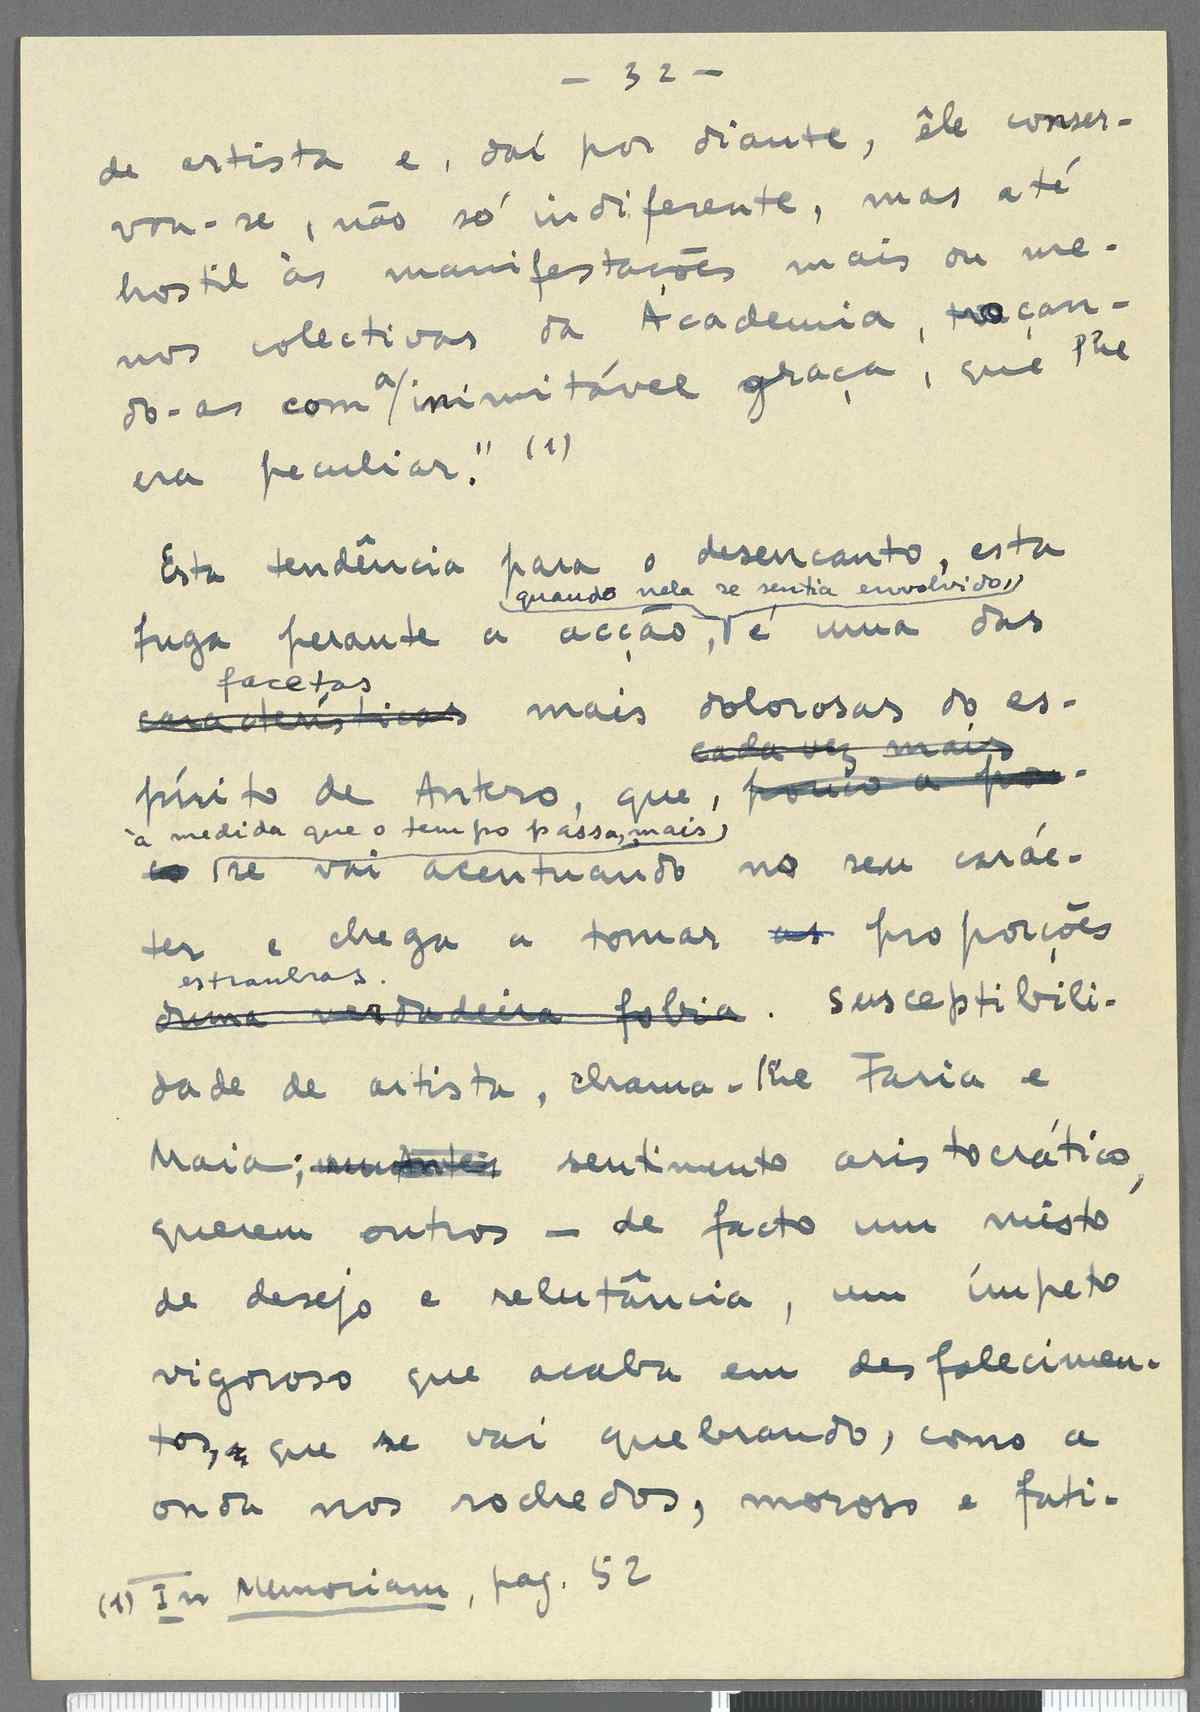 - 32 -
de artista e, daí por diante, êle conser-
vou-se, não só indiferente, mas até
hostil às manifestações mais ou me-
nos colectivas da Academia, troçan-
do-as com a inimitável graça, que lhe
era peculiar." (1)
Esta tendência para o desencanto, esta
quando nela se sentia envolvido,
fuga perante a acção, é uma das
facetas
características mais dolorosas do es-
cada vez mais
pírito de Antero, que, pouco a pou-
à medida que o tempo passa, mais
co se vai acentuando no seu carác-
ter e chega a tomar as proporções
estranhas.
duma verdadeira fobia. Susceptibili-
dade de artista, chama-lhe Faria e
Maia; sentimento aristocrático,
querem outros — de facto um misto
de desejo e relutância, um ímpeto
vigoroso que acaba em desfalecimen-
tos, que se vai quebrando, como a
onda nos rochedos, moroso e fati-
(1) In Memoriam, pag. 52